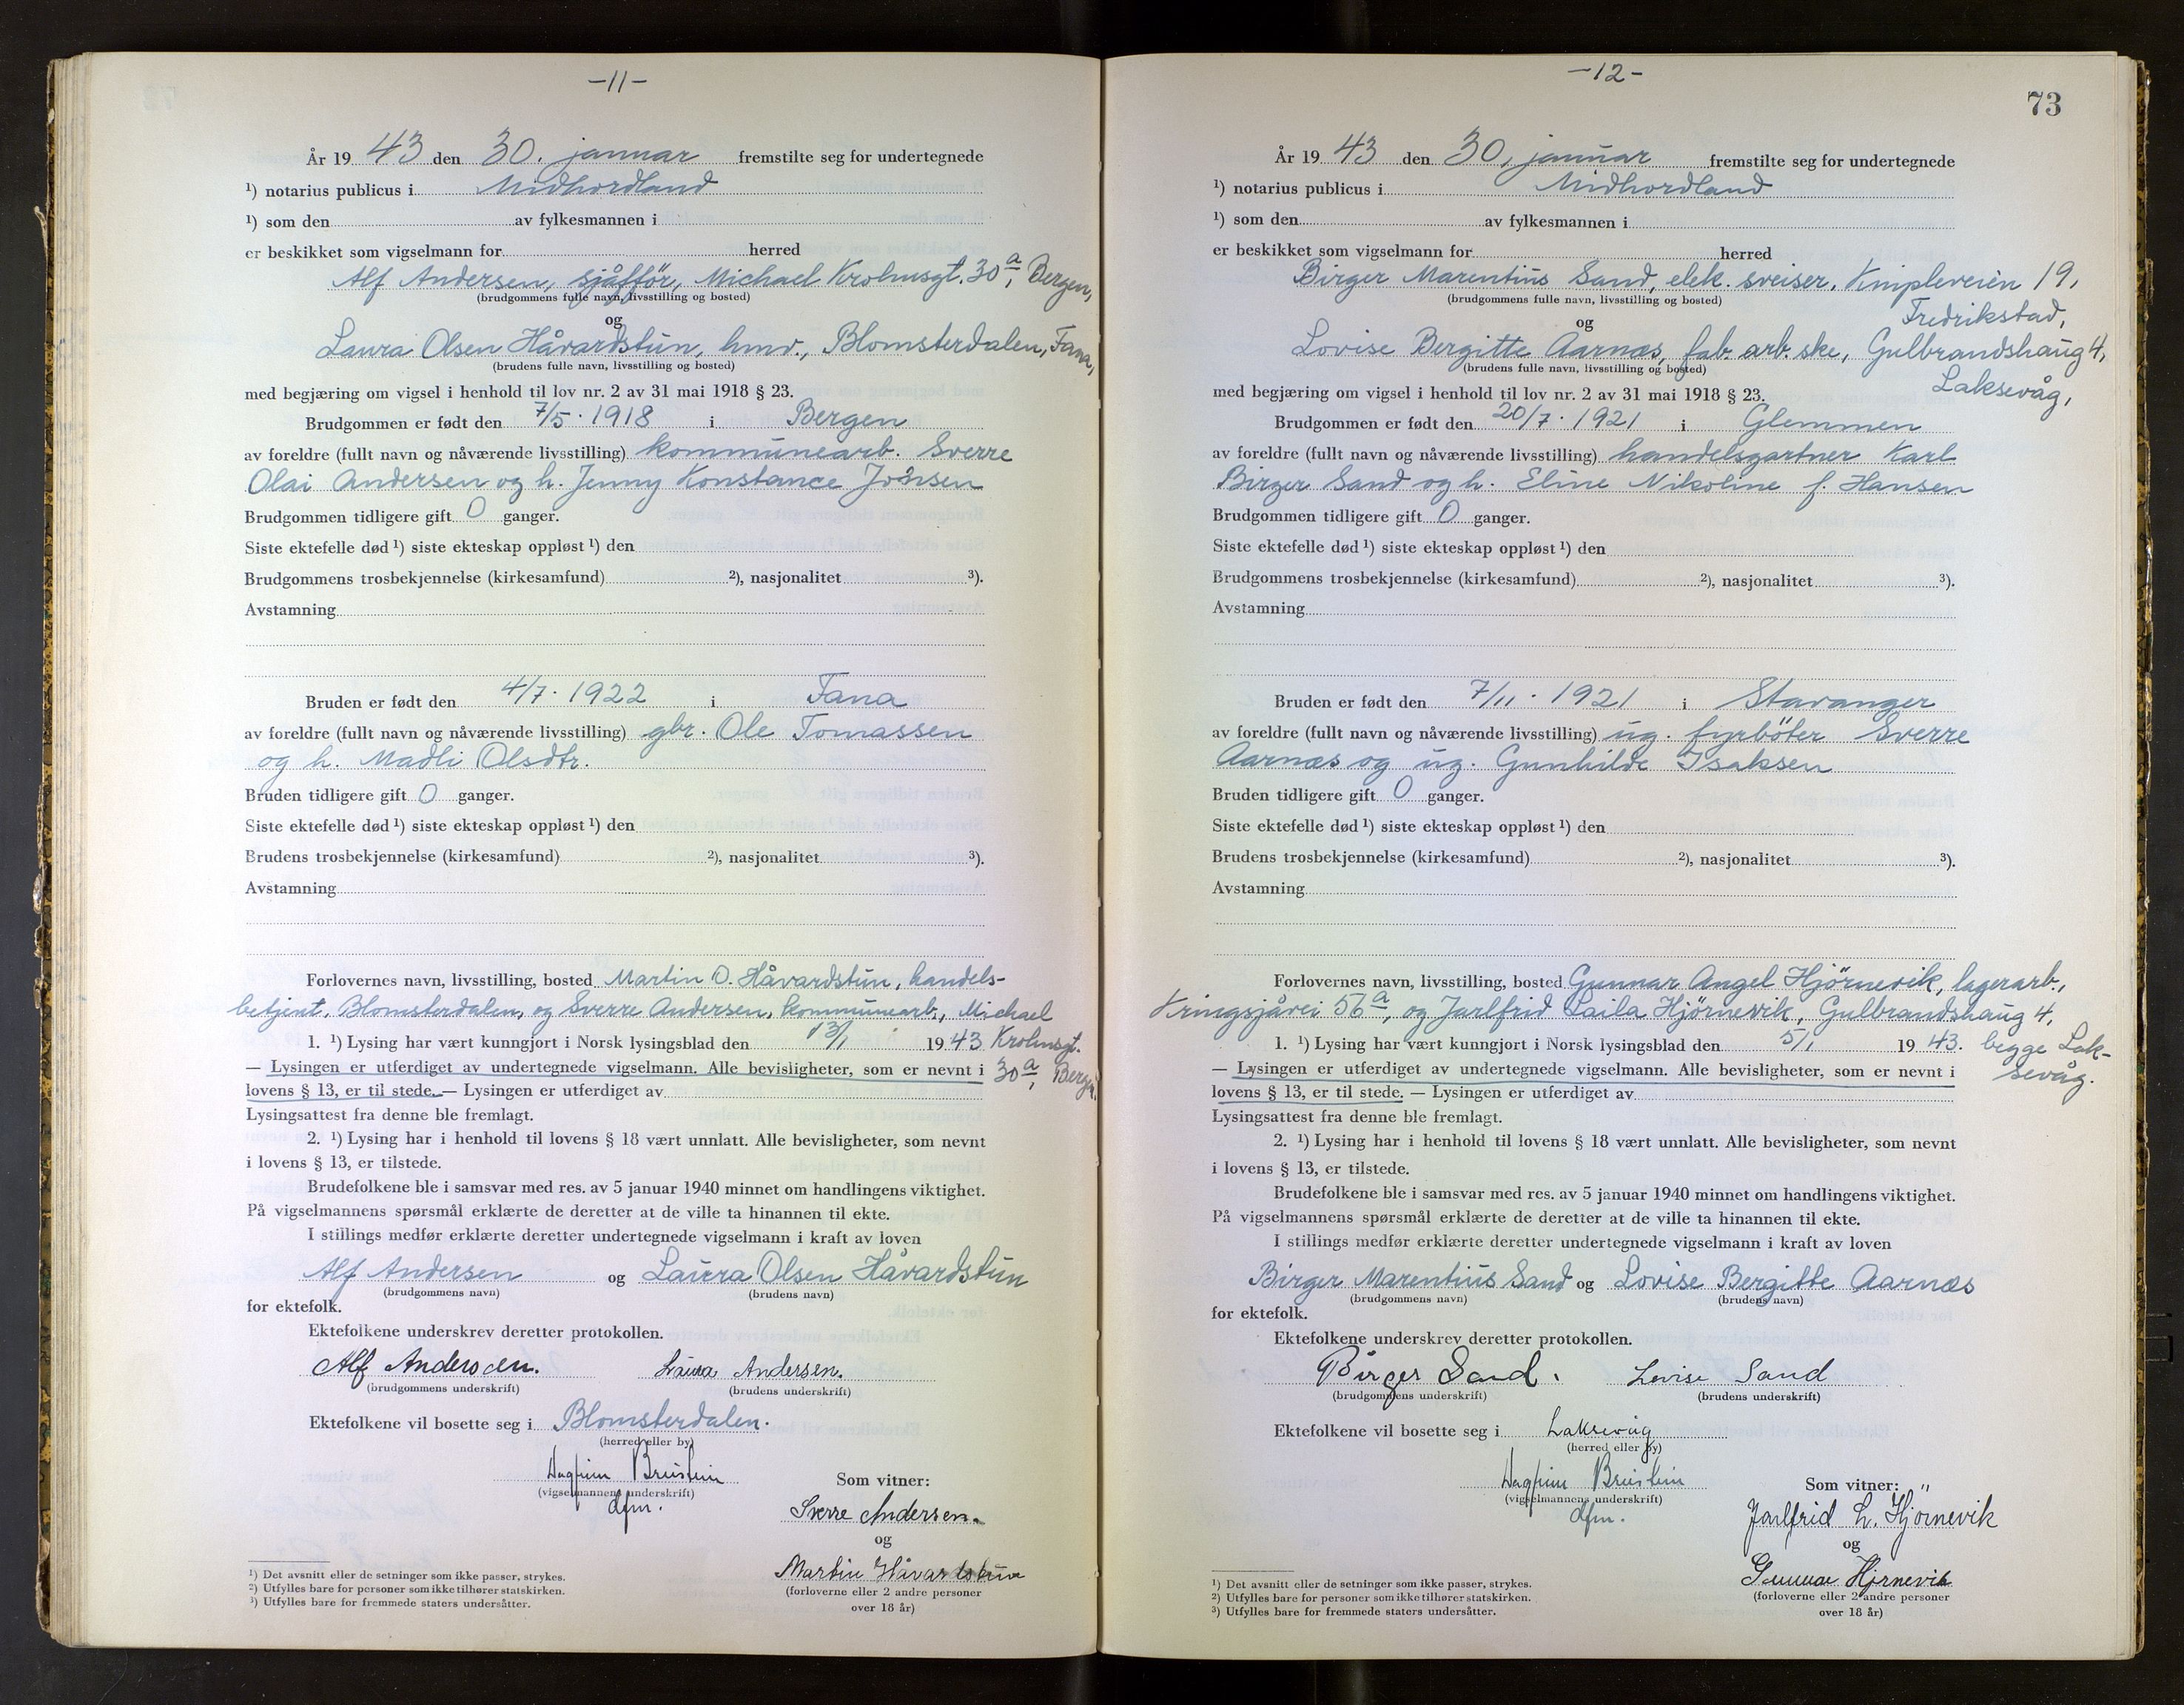 -11-
År 19 43 den 30. januar fremstilte seg for undertegnede
¹) notarius publicus i Midhordland
¹) som den av fylkesmannen i
er beskikket som vigselmann for herred
Alf Andersen, sjåfför, Michael Krohnsgt. 30ª, Bergen,
(brudgommens fulle navn, livsstilling og bosted)
og
Laura Olsen Håvardstun, hmv., Blomsterdalen, Fana,
(brudens fulle navn, livsstilling og bosted)
med begjæring om vigsel i henhold til lov nr. 2 av 31 mai 1918 § 23.
Brudgommen er født den 7/5. 1918 i Bergen
av foreldre (fullt navn og nåværende livsstilling) kommunearb. Sverre
Olai Andersen og h. Jenny Konstance Jonsen
Brudgommen tidligere gift 0 ganger.
Siste ektefelle død ¹) siste ekteskap oppløst ¹) den
Brudgommens trosbekjennelse (kirkesamfund) ²), nasjonalitet ³).
Avstamning
Bruden er født den 4/7. 1922 i Fana
av foreldre (fullt navn og nåværende livsstilling) gbr. Ole Tomassen
og h. Madli Olsdtr.
Bruden tidligere gift 0 ganger.
Siste ektefelle død ¹) siste ekteskap oppløst ¹) den
Brudens trosbekjennelse (kirkesamfund) ²), nasjonalitet ³).
Avstamning
Forlovernes navn, livsstilling, bosted Martin O. Håvardstun, handels-
betjent, Blomsterdalen, og Sverre Andersen, kommunearb., Michael
1. ¹) Lysing har vært kunngjort i Norsk lysingsblad den 13/1 19 43 Krohnsgt.
— Lysingen er utferdiget av undertegnede vigselmann. Alle bevisligheter, som er nevnt i 30ª, Bergen.
lovens § 13, er til stede. — Lysingen er utferdiget av
Lysingsattest fra denne ble fremlagt.
2. ¹) Lysing har i henhold til lovens § 18 vært unnlatt. Alle bevisligheter, som nevnt
i lovens § 13, er tilstede.
Brudefolkene ble i samsvar med res. av 5 januar 1940 minnet om handlingens viktighet.
På vigselmannens spørsmål erklærte de deretter at de ville ta hinannen til ekte.
I stillings medfør erklærte deretter undertegnede vigselmann i kraft av loven
Alf Andersen og Laura Olsen Håvardstun
(brudgommens navn) (brudens navn)
for ektefolk.
Ektefolkene underskrev deretter protokollen.
Alf Andersen. Laura Andersen.
(brudgommens underskrift) (brudens underskrift)
Ektefolkene vil bosette seg i Blomsterdalen.
(herred eller by)
Dagfinn Breistein
(vigselmannens underskrift)
dfm.
Som vitner:
Sverre Andersen.
og
Martin Håvardstun
(forloverne eller 2 andre personer
over 18 år)
¹) Det avsnitt eller de setninger som ikke passer, strykes.
²) Utfylles bare for personer som ikke tilhører statskirken.
³) Utfylles bare for fremmede staters undersåtter.
-12-
73
År 19 43 den 30. januar fremstilte seg for undertegnede
¹) notarius publicus i Midhordland
¹) som den av fylkesmannen i
er beskikket som vigselmann for herred
Birger Marentius Sand, elek. sveiser, Knipleveien 19,
(brudgommens fulle navn, livsstilling og bosted)
Fredrikstad,
og
Lovise Bergitte Aarnæs, fab. arb. ske, Gulbrandshaug 4,
(brudens fulle navn, livsstilling og bosted)
Laksevåg,
med begjæring om vigsel i henhold til lov nr. 2 av 31 mai 1918 § 23.
Brudgommen er født den 20/7. 1921 i Glemmen
av foreldre (fullt navn og nåværende livsstilling) handelsgartner Karl
Birger Sand og h. Eline Nikoline f. Hansen
Brudgommen tidligere gift 0 ganger.
Siste ektefelle død ¹) siste ekteskap oppløst ¹) den
Brudgommens trosbekjennelse (kirkesamfund) ²), nasjonalitet ³).
Avstamning
Bruden er født den 7/11. 1921 i Stavanger
av foreldre (fullt navn og nåværende livsstilling) ug. fyrböter Sverre
Aarnæs og ug. Gunhilde Isaksen
Bruden tidligere gift 0 ganger.
Siste ektefelle død ¹) siste ekteskap oppløst ¹) den
Brudens trosbekjennelse (kirkesamfund) ²), nasjonalitet ³).
Avstamning
Forlovernes navn, livsstilling, bosted Gunnar Angel Hjörnevik, lagerarb.,
Kringsjåvei 56ª, og Jarlfrid Laila Hjörnevik, Gulbrandshaug 4,
1. ¹) Lysing har vært kunngjort i Norsk lysingsblad den 5/1 19 43. begge Lak-
— Lysingen er utferdiget av undertegnede vigselmann. Alle bevisligheter, som er nevnt i sevåg.
lovens § 13, er til stede. — Lysingen er utferdiget av
Lysingsattest fra denne ble fremlagt.
2. ¹) Lysing har i henhold til lovens § 18 vært unnlatt. Alle bevisligheter, som nevnt
i lovens § 13, er tilstede.
Brudefolkene ble i samsvar med res. av 5 januar 1940 minnet om handlingens viktighet.
På vigselmannens spørsmål erklærte de deretter at de ville ta hinannen til ekte.
I stillings medfør erklærte deretter undertegnede vigselmann i kraft av loven
Birger Marentius Sand og Lovise Bergitte Aarnæs
(brudgommens navn) (brudens navn)
for ektefolk.
Ektefolkene underskrev deretter protokollen.
Birger Sand. Lovise Sand
(brudgommens underskrift) (brudens underskrift)
Ektefolkene vil bosette seg i Laksevåg
(herred eller by)
Dagfinn Breistein
(vigselmannens underskrift)
dfm.
Som vitner:
Jarlfrid L. Hjörnevik
og
Gunnar Hjørnevik
(forloverne eller 2 andre personer
over 18 år)
¹) Det avsnitt eller de setninger som ikke passer, strykes.
²) Utfylles bare for personer som ikke tilhører statskirken.
³) Utfylles bare for fremmede staters undersåtter.